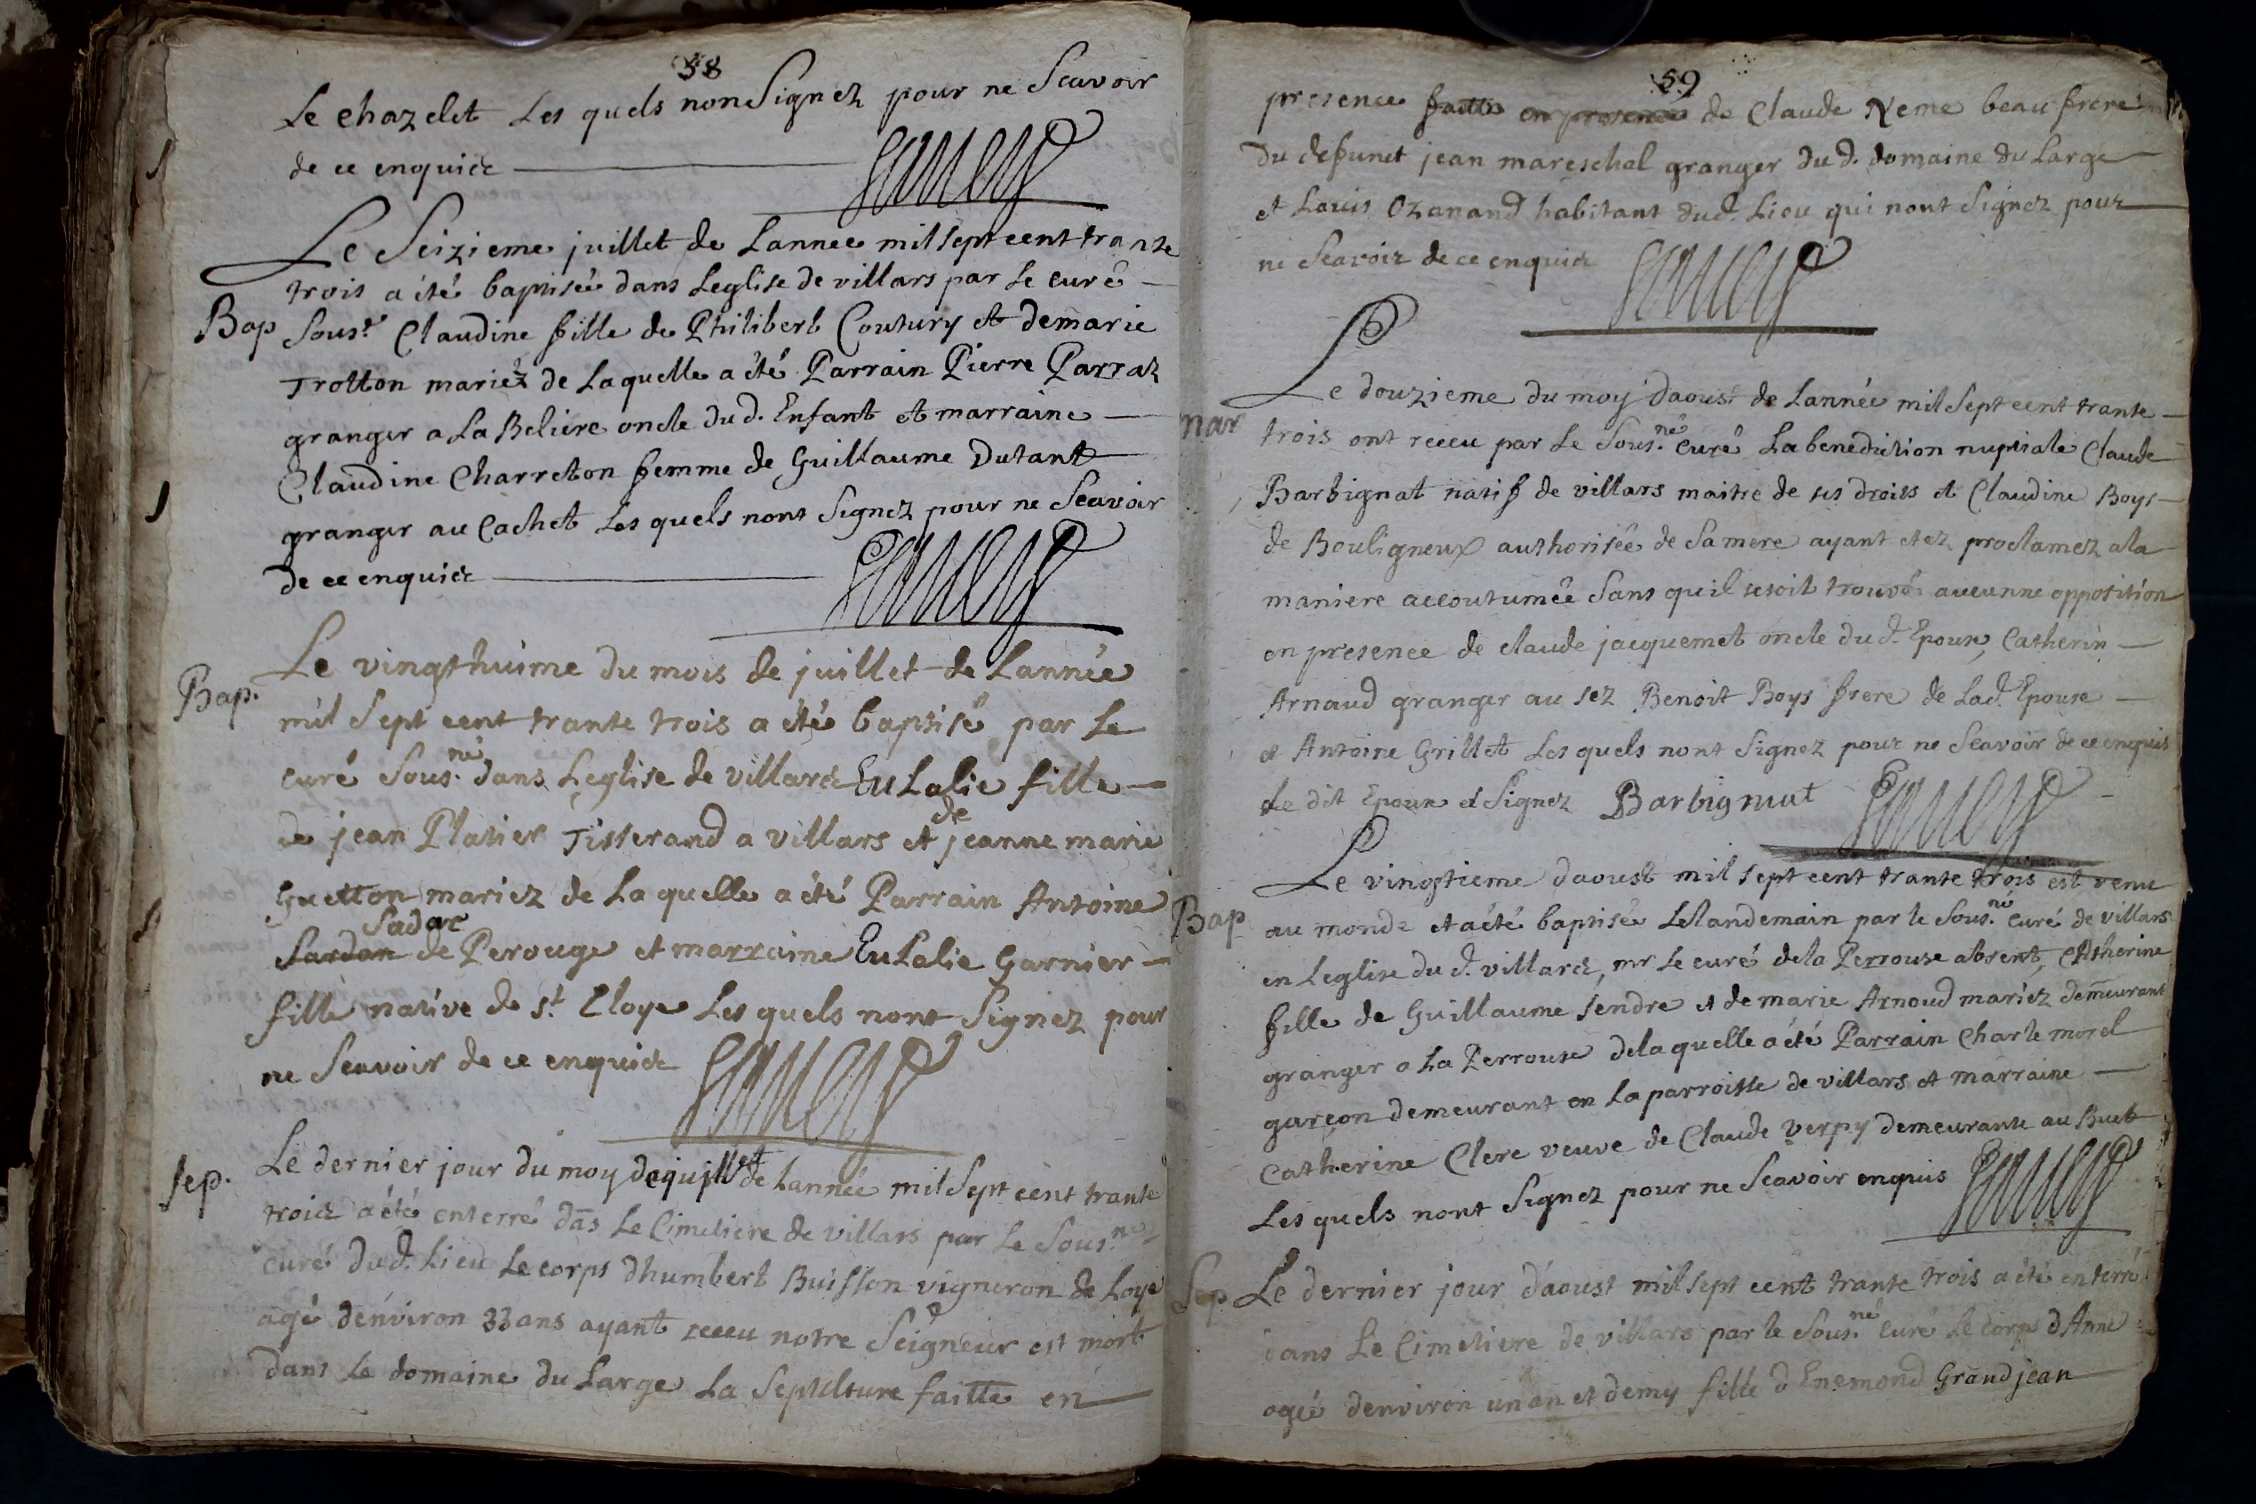 58
Le chazelet Les quels nonSignez pour ne Scavoir
de ce enquict
Le Seizieme juillet de Lannee mil sept cent trante
trois a été baptisée dans Leglise de villars par Le curé
Bap Sous.é Claudine fille de Philibert Coutury et de marie
Trolton mariéz de Laquelle a été Parrain Pierre Parraz
granger a La Beliere oncle du d. Enfant et marraine
Claudine Charreton femme de Guillaume Dutant
granger au Cachet Les quels nont Signez pour ne Scavoir
de ce enquict
Bap. Le vingthuime du mois de juillet de Lannée
mil Sept cent trante trois a été baptisé par Le
curé Sous.né dans Leglise de villars Eulalie fille
de jean Platier Tisserand a villars et de jeanne marie
Guetton mariez de La quelle a été Parrain Antoine
Sadar
de Perouge et marraine Eulalie Garnier
fille native de st. Eloye Les quels nont Signez pour
ne Scavoir de ce enquict
Sep. Le dernier jour du moy de juillet de Lannée mil Sept cent trante
trois a été enterré dās Le Cimetiere de villars par Le Sous.né
curé du d. Lieu Le corps dhumbert Buisson vigneron de Loye
agé denviron 33 ans ayant receu notre Seigneur est mort
dans Le domaine du Large La Sepulture faitte en
59
presence de Claude Neme beau frere
du defunct jean mareschal granger du d. domaine du Large
et Louis Ozanand habitant du d. Lieu qui nont Signez pour
ne Scavoir de ce enquict
Le douzieme du moy daoust de Lannée mil Sept cent trante
mar trois ont receu par Le Sous.né curé La benediction nuptiale Claude
Barbignat natif de villars maitre de ses droits et Claudine Boys
de Bouligneux authorisée de Sa mere ayant etez proclamez a la
maniere accoutumée Sans quil se soit trouvé aucunne opposition
en presence de claude jacquemet oncle du d. Epoux, Catherin
Arnaud granger au sez Benoit Boys frere de Lad. Epouse
et Antoine Grillet Les quels nont Signez pour ne Scavoir de ce enquis
Le dit Epoux et Signez Barbignat
Le vingtieme daoust mil sept cent trante trois est venu
Bap au monde et a été baptisée Le landemain par le Sous.né curé de villars
en Leglise du d. villars, mr Le curé de la Perrouse absent, Catherine
fille de Guillaume Sendre et de marie Arnoud mariez demeurant
granger a La Perrouse de la quelle a été Parrain Charle morel
garçon demeurant en La parroisse de villars et marraine
Catherine Clere veuve de Claude Verpy demeurante au Buet
Les quels nont Signez pour ne Scavoir enquis
Sep Le dernier jour d'aoust mil sept cent trante trois a été enterré
dans Le Cimetiere de villars par le Sous.né curé Le corps d'Anne
agée denviron un an et demy fille d'Enemond Grandjean